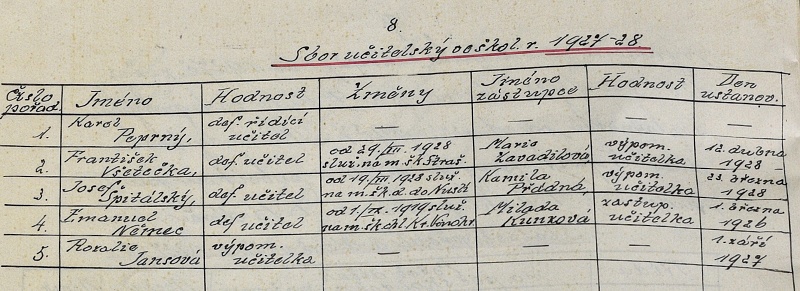 8.
Sbor učitelský ve škol. r. 1927-28.
Číslo pořad. Jméno Hodnost Změny Jméno zástupce Hodnost Den ustanov.
1. Karel Peprný, def. řídící učitel — — — —
2. František Všetečka, def. učitel od 29./III. 1928 služ. na m. šk. Straš. Marie Zavadilová výpom. učitelka 12. dubna 1928
3. Josef Špitálský, def. učitel od 19./III 1928 služ. na m. šk. d. do Kustě Kamila Přádná, výpom. učitelka 23. března 1928
4. Emanuel Němec def. učitel od 1./IX. 1919 služ. na m. šk. chl. Kr. Vinohr. Milada Kunxová zastup. učitelka 1. března 1926
5. Rozalie Jansová výpom. učitelka — — — 1. září 1927